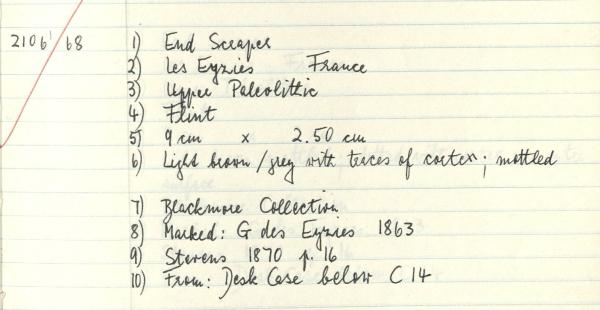 2106/68 1) End Scraper
2) Les Eyzies France
3) Upper Paleolithic
4) Flint
5) 9 cm x 2.50 cm
6) Light brown/grey with traces of cortex; mottled
7) Blackmore Collection
8) Marked: G des Eyzies 1863
9) Stevens 1870 p. 16
10) From: Desk Case below C 14